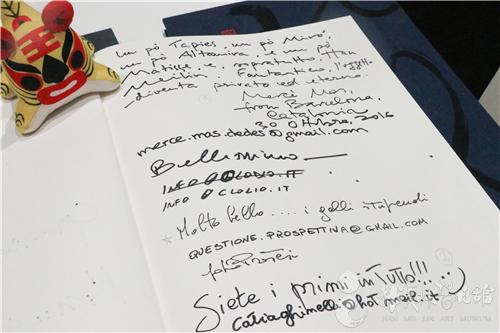 un pò Tapies, un pò Mirò,
un pò Altamira e un pò
Matisse e, sopratutto Han
Meilin. Fantastico
diventa pivoto ed eterno.
Mercè Mas,
from Barcelona,
Catalonia
30 Ottobre, 2016
merce.mas.dedes@gmail.com
INFO@CLOLIO.IT
INFO@CLOLIO.IT
Molto bello.... i galli stupendi
QUESTIONE.PROSPETTINA@GMAIL.COM
Siete i primi in Tutto!!!
HAN MEI LIN ART MUSEUM